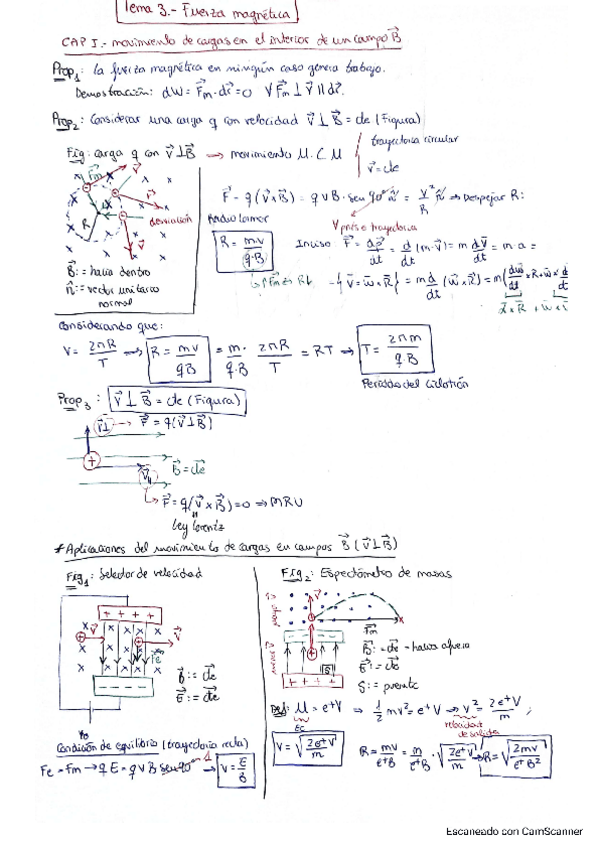 Tema 3.- Fuerza magnética
CAP I.- movimiento de cargas en el interior de un campo B⃗
Prop₁: la fuerza magnética en ningún caso genera trabajo.
Demostración: dW = F⃗m · dr⃗ = 0 ∀ F⃗m ⊥ v⃗ ∥ dr⃗.
Prop₂: Considerar una carga q con velocidad v⃗ ⊥ B⃗ = cte (Figura)
trayectoria circular
v⃗ = cte
Fig: carga q con v⃗ ⊥ B⃗ → movimiento M.C.U
F⃗m
v⃗
R
desviación
v⃗
B⃗:= hacia dentro
n⃗:= vector unitario
normal
F⃗ = q(v⃗ × B⃗) = q v B · sen 90° n⃗ = v²/R n⃗ ⇒ Despejar R:
Radio Larmor
R = mv/q·B
Inciso F⃗ = dp⃗/dt = d/dt (m·v⃗) = m dv⃗/dt = m·a =
{v⃗ = w⃗ × R⃗} = m d/dt (w⃗ × R⃗) = m(dw⃗/dt × R + w × d
α⃗ × R⃗
Considerando que:
v = 2πR/T → R = mv/qB = m/q·B · 2πR/T = RT → T = 2πm/q·B
Período del Ciclotrón
Prop₃: v⃗ ⊥ B⃗ = cte (Figura)
v⃗⊥ → F⃗ = q(v⃗ ⊥ B⃗)
B⃗ = cte
v⃗∥
F⃗ = q(v⃗ × B⃗) = 0 ⇒ MRU
Ley Lorentz
* Aplicaciones del movimiento de cargas en campos B⃗ (v⃗ ⊥ B⃗)
Fig₁: Selector de velocidad
+ + + +
v⃗
v⃗
Fe
B⃗:= cte
E⃗:= cte
V₀
Condición de equilibrio (trayectoria recta)
Fe = Fm → q E = q v B sen 90° → v = E/B
Fig₂: Espectómetro de masas
v⃗
F⃗m
B⃗:= cte - hacia afuera
E⃗:= cte
S:= puente
+ + + +
U = e⁺V ⇒ 1/2 mv² = e⁺V ⇒ v² = 2e⁺V/m ;
EC
velocidad
de salida
v = √(2e⁺V/m)
R = mv/e⁺B = m/e⁺B · √(2e⁺V/m) → R = √(2mv/e⁺B²)
Escaneado con CamScanner